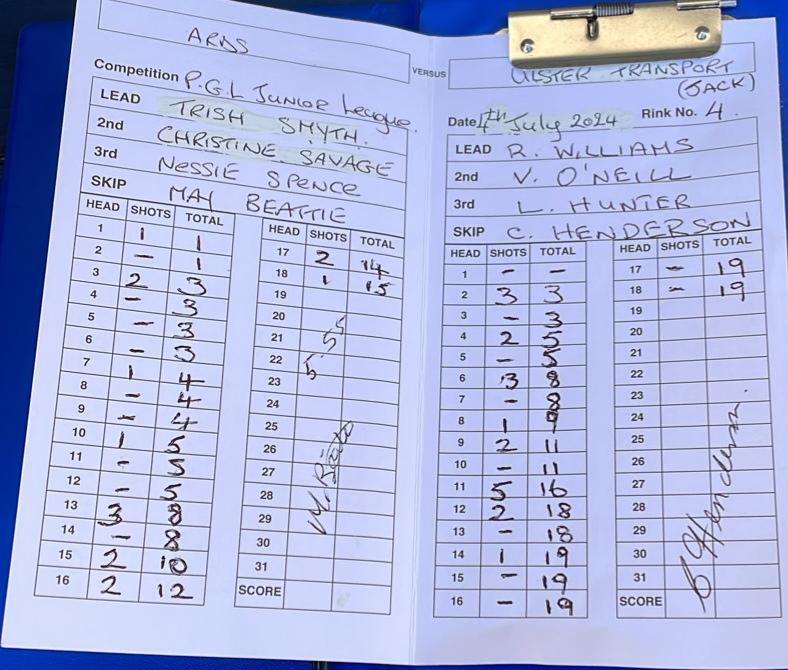 ARDS
Competition P.G.L Junior League.
LEAD TRISH SMYTH.
2nd CHRISTINE SAVAGE
3rd NESSIE SPENCE
SKIP MAY BEATTIE
HEAD SHOTS TOTAL
1 1 1
2 - 1
3 2 3
4 - 3
5 - 3
6 - 3
7 1 4
8 - 4
9 - 4
10 1 5
11 - 5
12 - 5
13 3 8
14 - 8
15 2 10
16 2 12
HEAD SHOTS TOTAL
17 2 14
18 1 15
19
20
21
22
5.55
23
24
25
26
27
28
29
30
31
SCORE
VERSUS
ULSTER TRANSPORT
(JACK)
Date 4th July 2024 Rink No. 4.
LEAD R. WILLIAMS
2nd V. O'NEILL
3rd L. HUNTER
SKIP C. HENDERSON
HEAD SHOTS TOTAL
1 - -
2 3 3
3 - 3
4 2 5
5 - 5
6 3 8
7 - 8
8 1 9
9 2 11
10 - 11
11 5 16
12 2 18
13 - 18
14 1 19
15 - 19
16 - 19
HEAD SHOTS TOTAL
17 - 19
18 - 19
19
20
21
22
23
24
25
26
27
28
29
30
31
SCORE
C Henderson